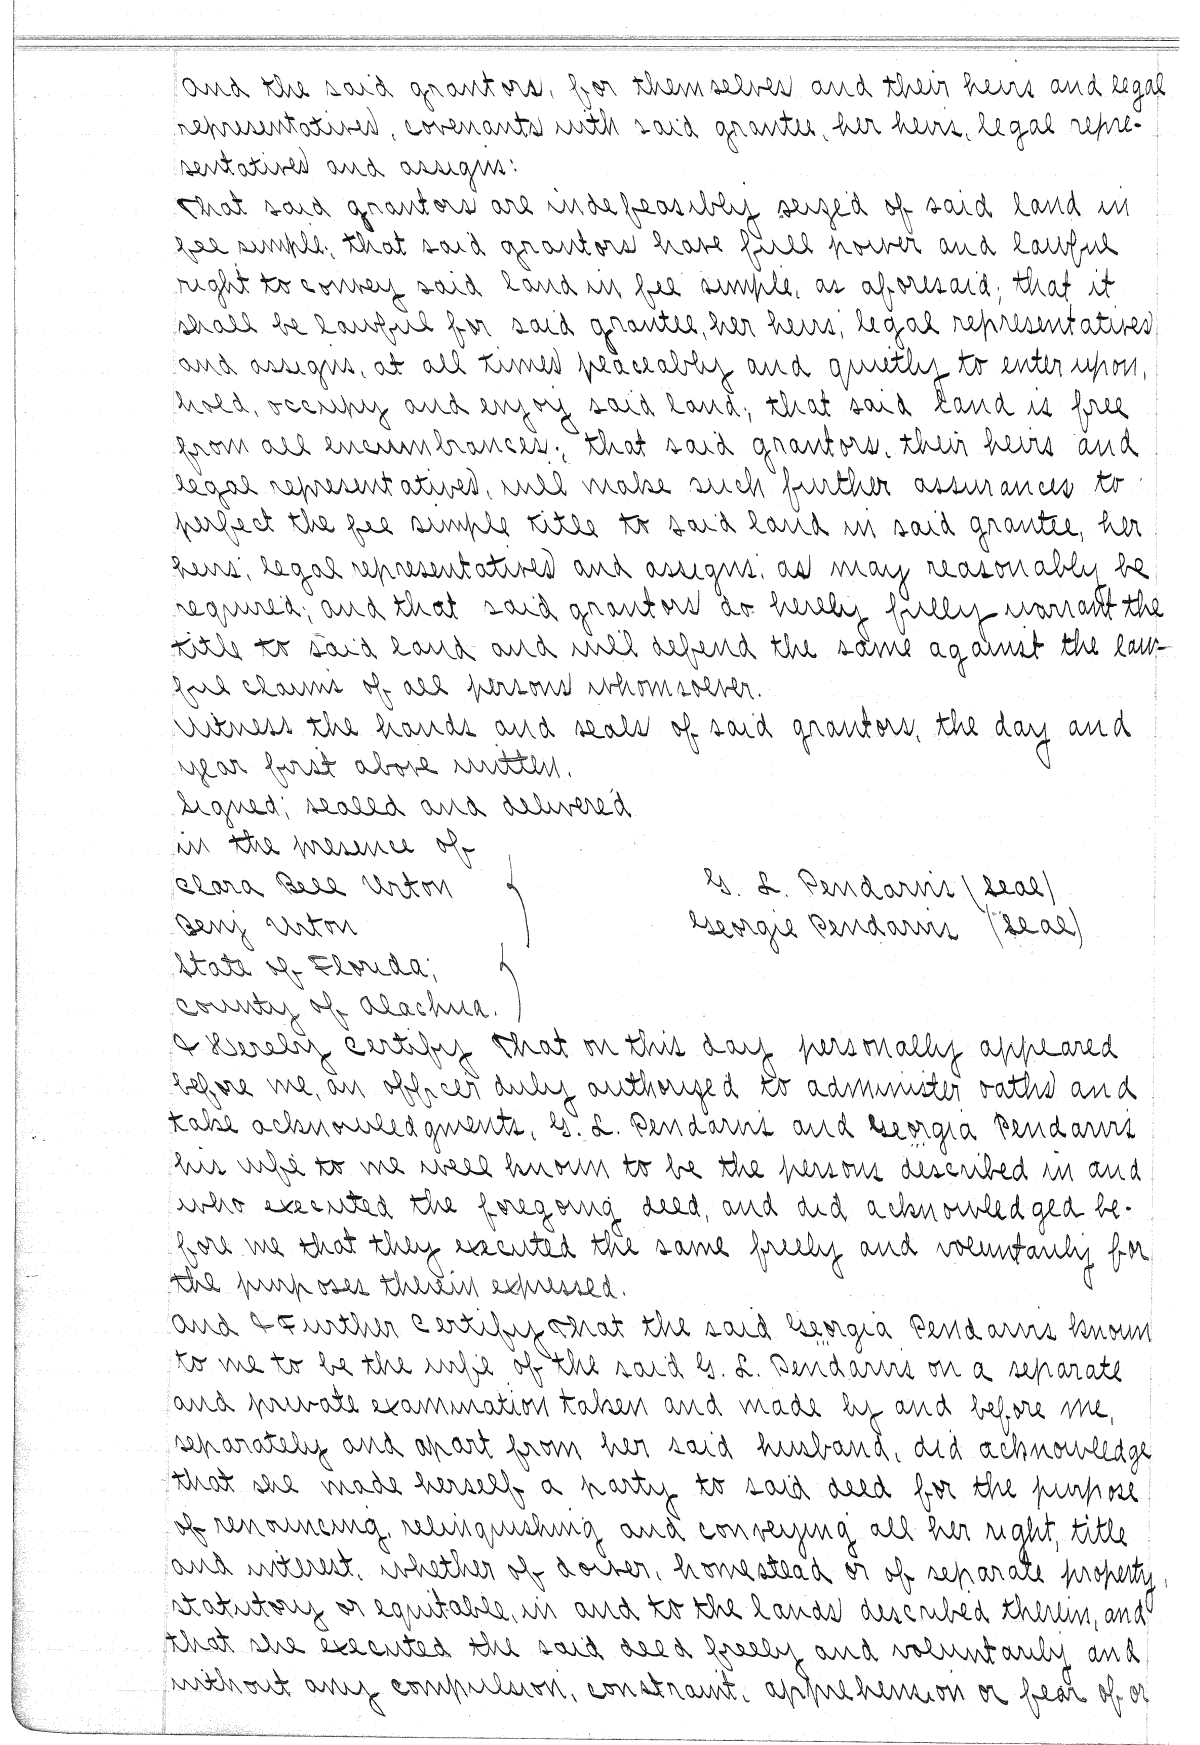 And the said grantors, for themselves and their heirs and legal
representatives, covenants with said grantee, her heirs, legal repre-
sentatives and assigns:
That said grantors are indefeasibly seized of said land in
fee simple; that said grantors have full power and lawful
right to convey said land in fee simple, as aforesaid; that it
shall be lawful for said grantee, her heirs, legal representatives
and assigns, at all times peaceably and quietly to enter upon,
hold, occupy and enjoy said land; that said land is free
from all encumbrances; that said grantors, their heirs and
legal representatives, will make such further assurances to
perfect the fee simple title to said land in said grantee, her
heirs, legal representatives and assigns, as may reasonably be
required; and that said grantors do hereby fully warrant the
title to said land and will defend the same against the law-
ful claims of all persons whomsoever.
Witness the hands and seals of said grantors, the day and
year first above written.
Signed, sealed and delivered
in the presence of
Clara Bell Urton } G. L. Pendarvis (Seal)
Benj Urton Georgie Pendarvis (Seal)
State of Florida, }
County of Alachua.
I Hereby Certify That on this day personally appeared
before me, an officer duly authorized to administer oaths and
take acknowledgments, G. L. Pendarvis and Georgia Pendarvis
his wife to me well known to be the persons described in and
who executed the foregoing deed, and did acknowledged be-
fore me that they executed the same freely and voluntarily for
the purposes therein expressed.
And I Further Certify That the said Georgia Pendarvis known
to me to be the wife of the said G. L. Pendarvis on a separate
and private examination taken and made by and before me,
separately and apart from her said husband, did acknowledge
that she made herself a party to said deed for the purpose
of renouncing, relinquishing and conveying all her right, title
and interest, whether of dower, homestead or of separate property,
statutory or equitable, in and to the lands described therein, and
that she executed the said deed freely and voluntarily and
without any compulsion, constraint, apprehension or fear of or